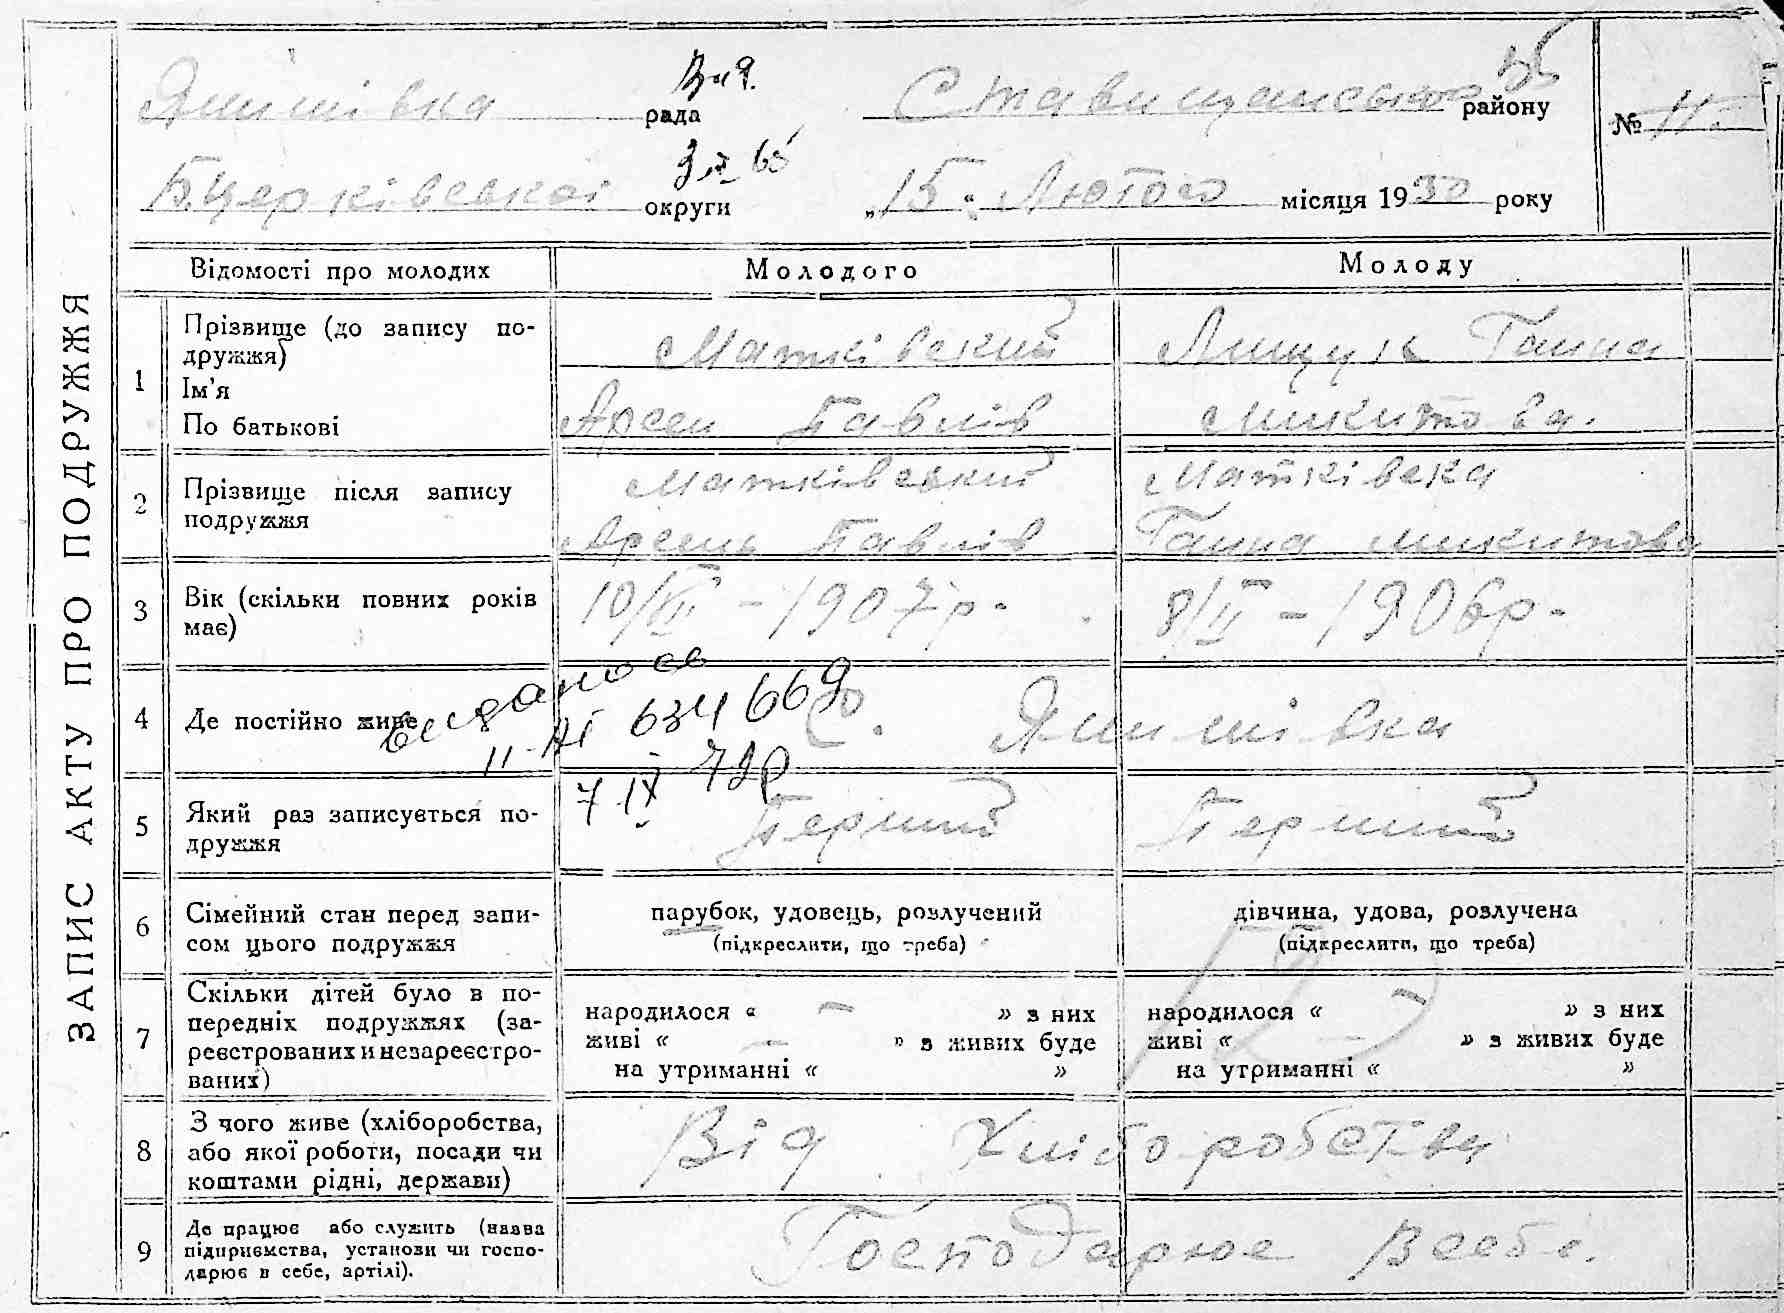 ЗАПИС АКТУ ПРО ПОДРУЖЖЯ
Янишівка рада Ставищанського району № 11.
Б.церківської округи „15“ Лютого місяця 1930 року
Відомості про молодих Молодого Молоду
1 Прізвище (до запису по-
дружжя)
Ім'я
По батькові
Матківский
Арсен Павлів
Лищук Ганна
Микитова.
2 Прізвище після запису
подружжя
Матківський
Арсень Павлів
Матківска
Ганна Микитова
3 Вік (скільки повних років
має)
10/VII - 1907 р. 8/II - 1906 р.
4 Де постійно живе
С. Янишівка
видано св
II-АІ 634669
7 IX 72р
5 Який раз записується по-
дружжя
Перший Перший
6 Сімейний стан перед запи-
сом цього подружжя
парубок, удовець, розлучений
(підкреслити, що треба)
дівчина, удова, розлучена
(підкреслити, що треба)
7 Скільки дітей було в по-
передніх подружжях (за-
реєстрованих и незареєстро-
ваних)
народилося « — » з них
живі « — » з живих буде
на утриманні « »
народилося « — » з них
живі « — » з живих буде
на утриманні « »
8 З чого живе (хліборобства,
або якої роботи, посади чи
коштами рідні, держави)
Від Хліборобства
9 Де працює або служить (назва
підприємства, установи чи госпо-
дарює в себе, артілі).
Господарює Всебе.